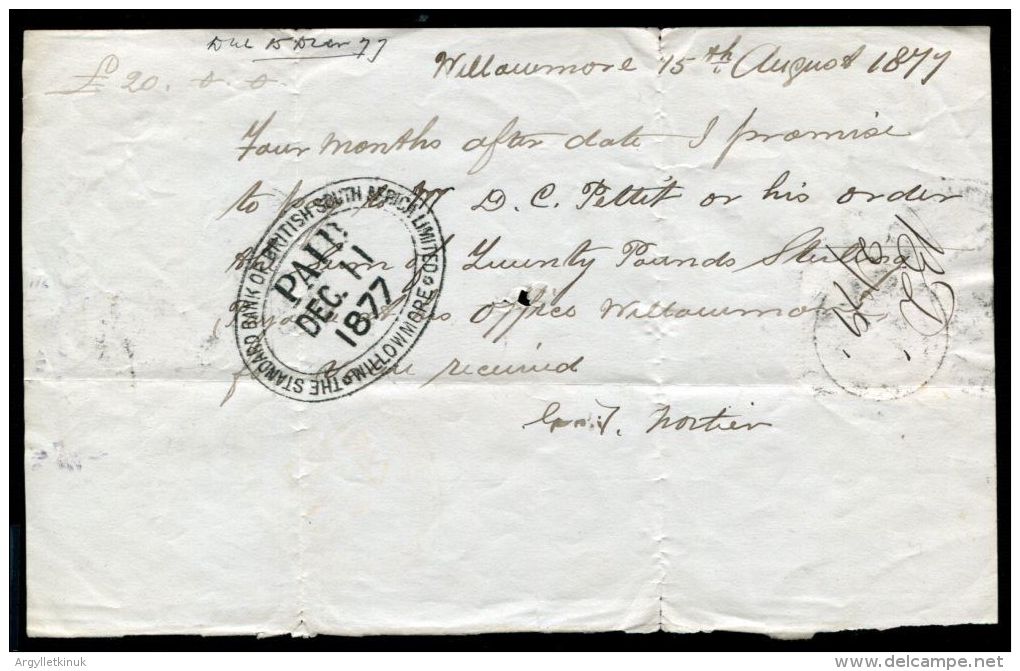 Due 15 Decr 77
£20. 0. 0.
Willowmore 15th August 1877
Four months after date I promise
to pay to Mr D. C. Pettit or his order
the sum of Twenty Pounds Sterling
Payable at his Office Willowmore
for value received
Nortier
THE STANDARD BANK OF BRITISH SOUTH AFRICA LIMITED
WILLOWMORE
PAID
DEC. 11
1877
Argylletkinuk
delcampe.net